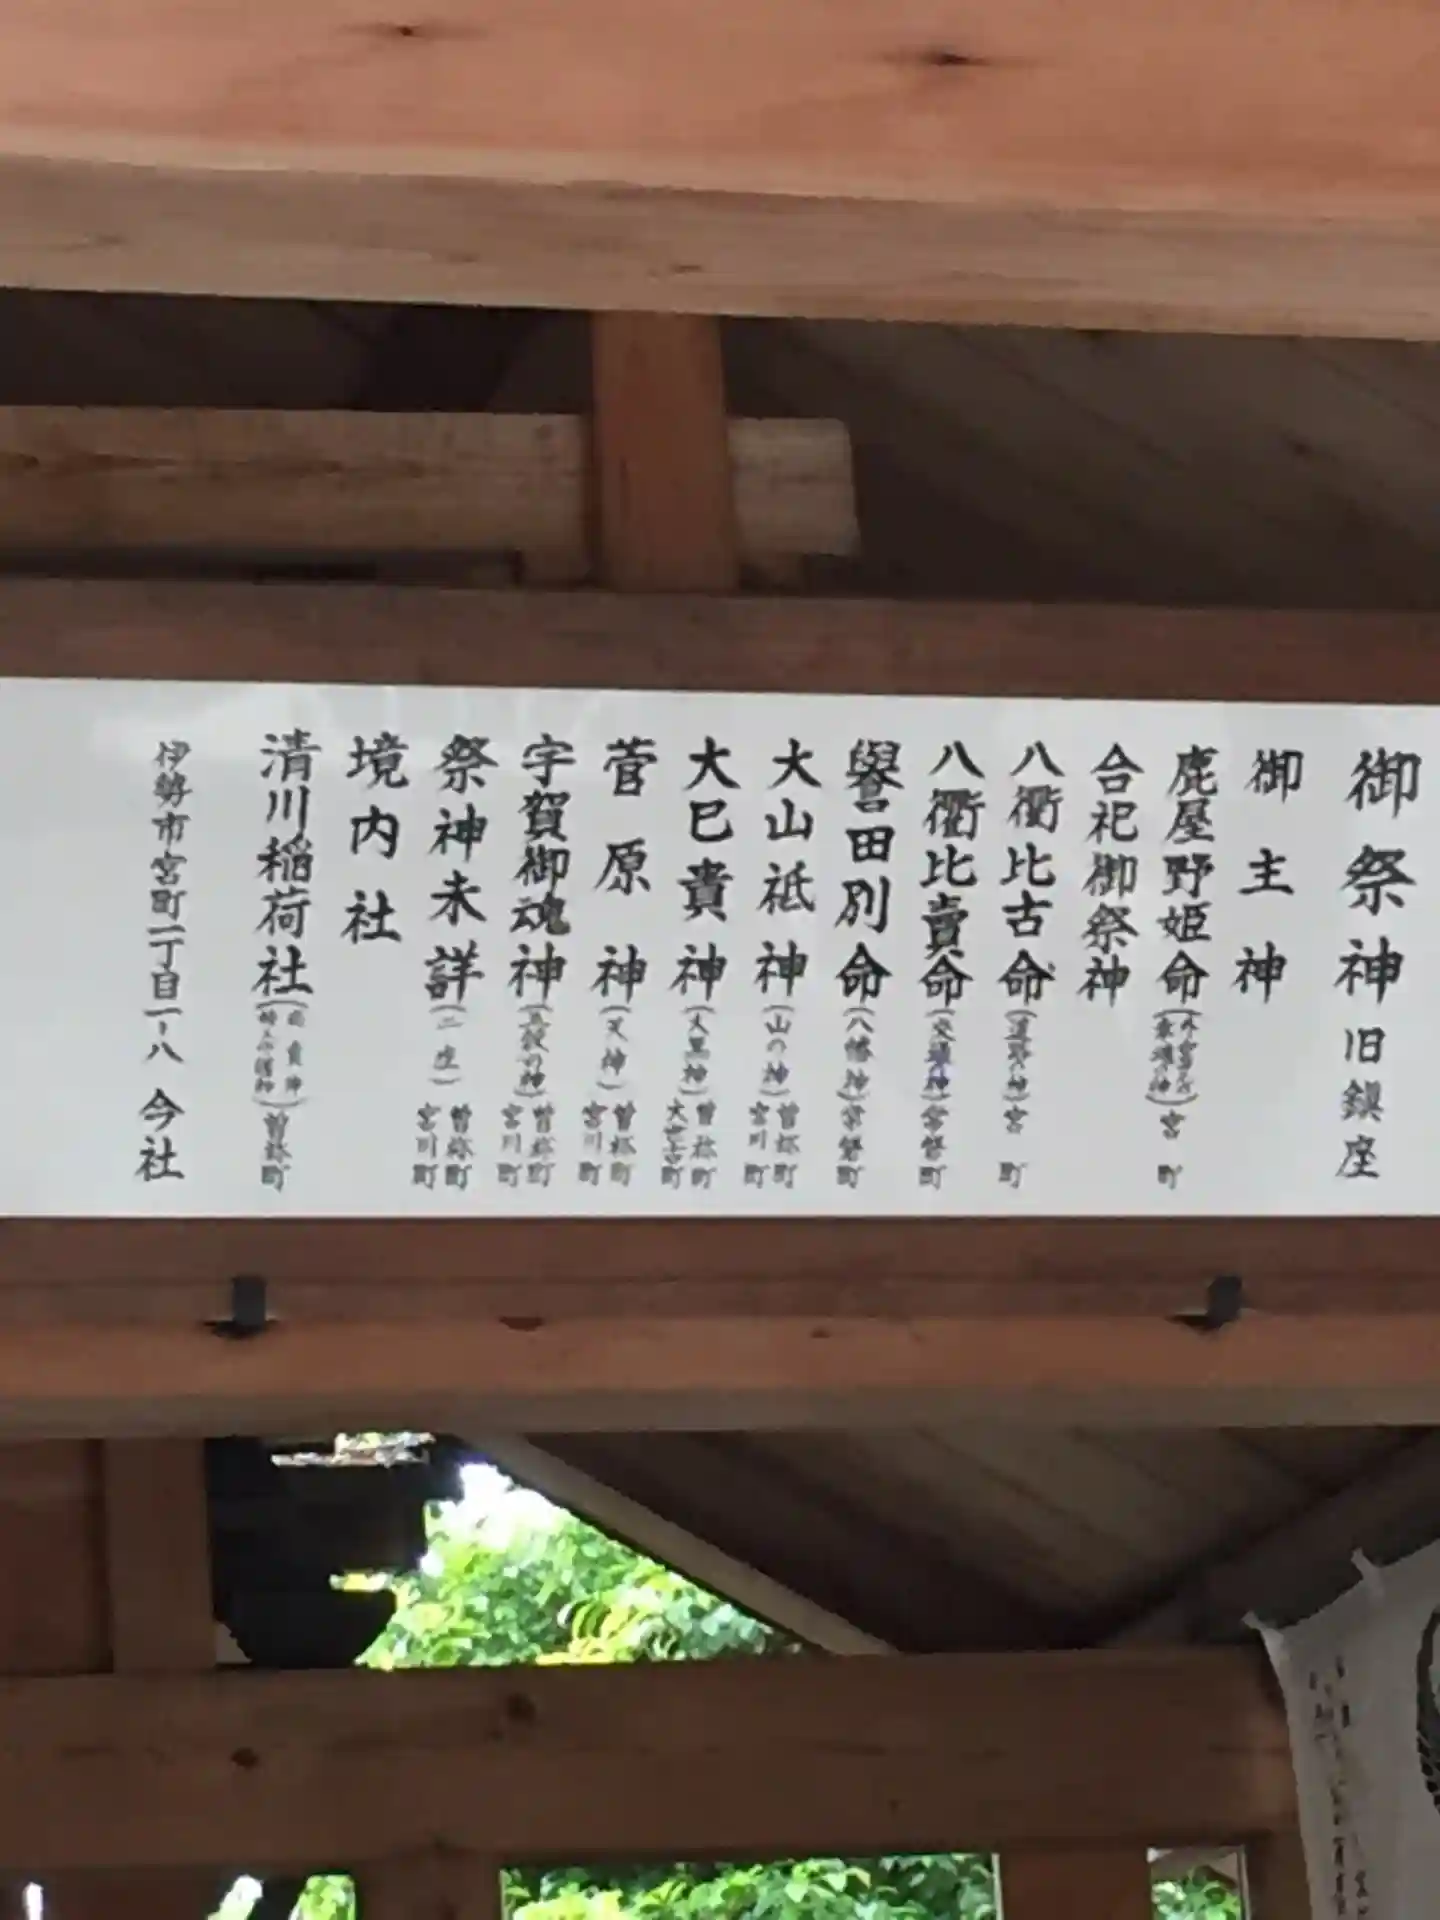 御祭神旧鎮座
御主神
鹿屋野姫命 宮町
合祀御祭神
八衢比古命(道路の神)宮町
八衢比賣命(交通の神)常磐町
譽田別命(八幡神)常磐町
大山祇神(山の神)曽祢町 宮川町
大巳貴神(大黒神)曽祢町 大世古町
菅原神(天神)曽祢町 宮川町
宇賀御魂神(五穀の神)曽祢町 宮川町
祭神未詳(二座)曽祢町 宮川町
境内社
清川稲荷社 曽祢町
伊勢市宮町一丁目一ー八 今社